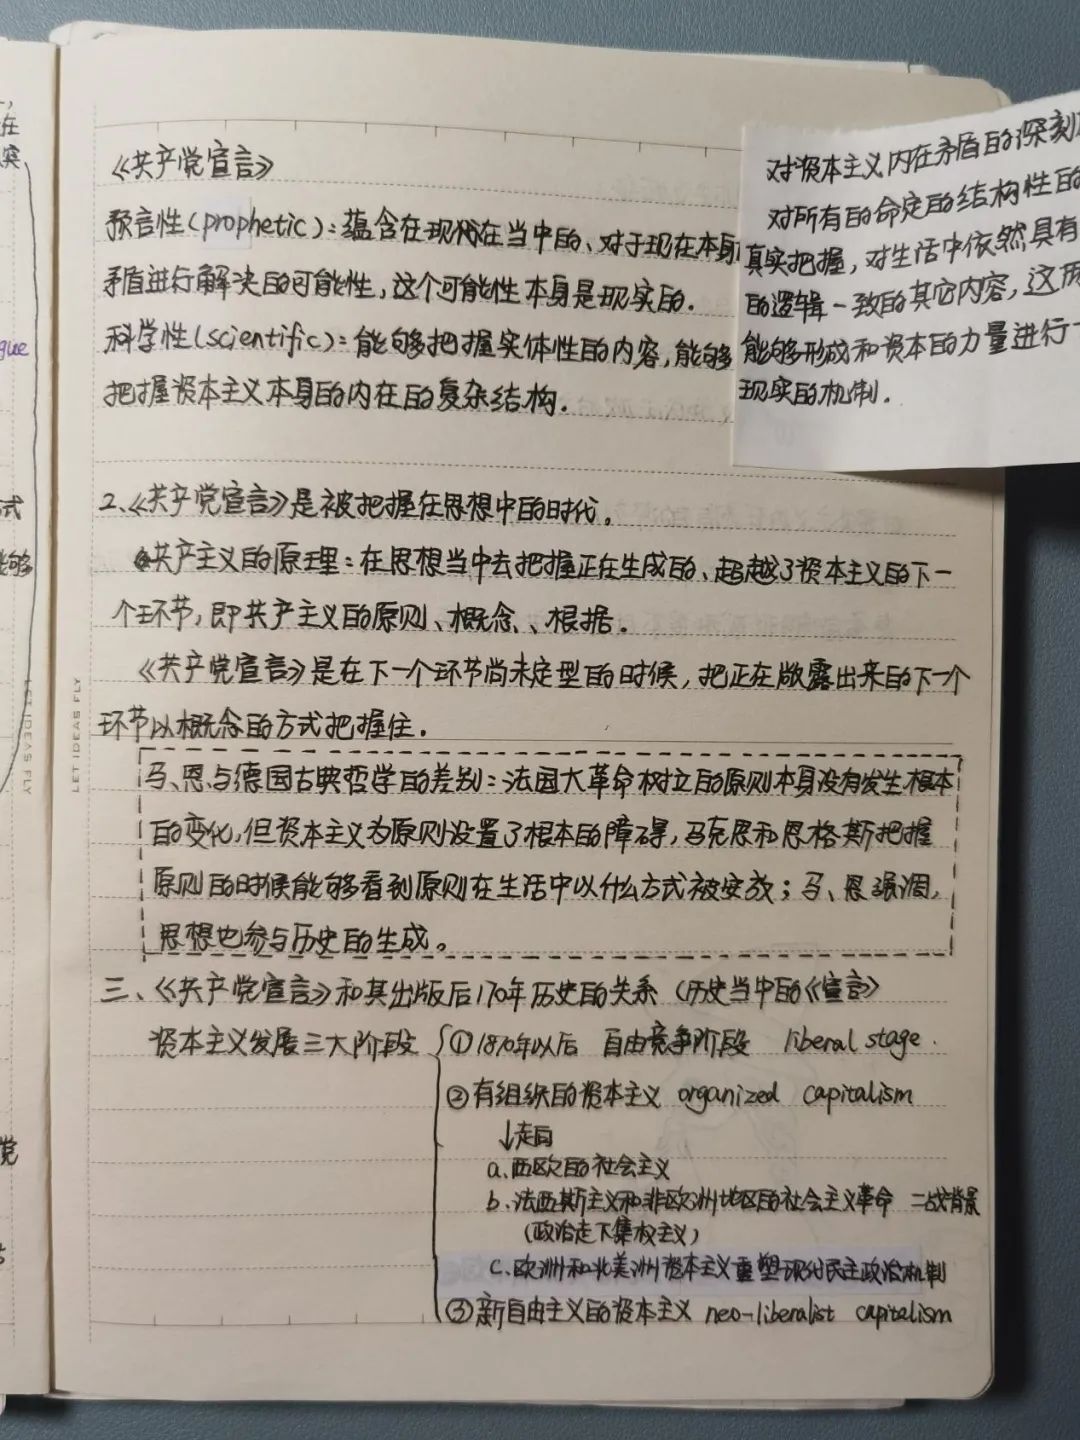 《共产党宣言》
预言性(prophetic):蕴含在现代在当中的、对于现在本身
矛盾进行解决的可能性,这个可能性本身是现实的.
科学性(scientific):能够把握实体性的内容,能够
把握资本主义本身的内在的复杂结构.
对资本主义内在矛盾的深刻
对所有的命定的结构性的
真实把握,对生活中依然具有
的逻辑一致的其它内容,这
能够形成和资本的力量进行
现实的机制.
2、《共产党宣言》是被把握在思想中的时代。
共产主义的原理:在思想当中去把握正在生成的、超越了资本主义的下一
个环节,即共产主义的原则、概念、、根据.
《共产党宣言》是在下一个环节尚未定型的时候,把正在敞露出来的下一个
环节以概念的方式把握住.
马、恩与德国古典哲学的差别:法国大革命树立的原则本身没有发生根本
的变化,但资本主义为原则设置了根本的障碍,马克思和恩格斯把握
原则的时候能够看到原则在生活中以什么方式被安放;马、恩强调,
思想也参与历史的生成。
三、《共产党宣言》和其出版后170年历史的关系(历史当中的《宣言》
资本主义发展三大阶段
①1870年以后 自由竞争阶段 liberal stage.
②有组织的资本主义 organized capitalism
↓走向
a.西欧的社会主义
b.法西斯主义和非欧洲地区的社会主义革命 二战背景
(政治走下集权主义)
c.欧洲和北美洲资本主义重塑现代民主政治机制
③新自由主义的资本主义 neo-liberalist capitalism
LET IDEAS FLY
LET IDEAS FLY
在
gue
式
能够
党